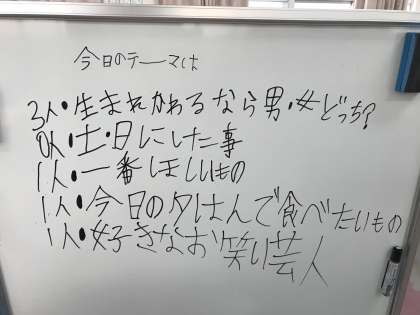 今日のテーマは
3人・生まれかわるなら男・女どっち?
0人・土・日にした事
1人・一番ほしいもの
1人・今日の夕はんで食べたいもの
1人・好きなお笑い芸人